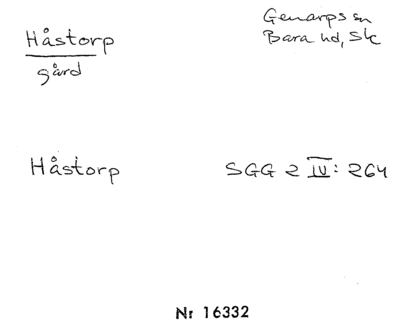 Håstorp
gård
Genarps sn
Bara hd, Sk
Håstorp
SGG 2 IV: 264
Nr 16332